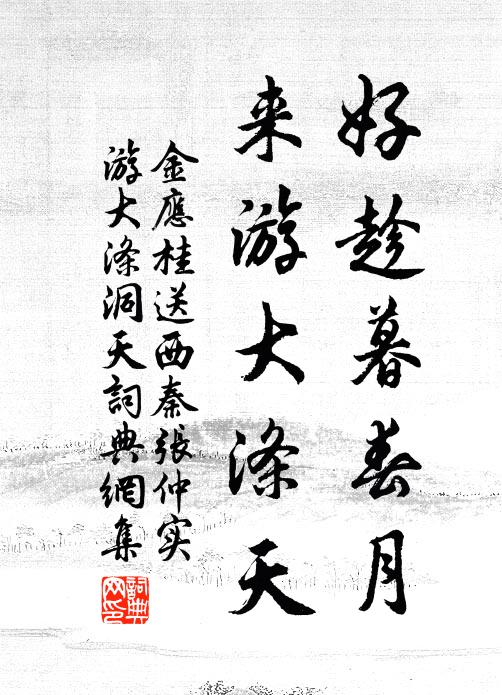 好趁暮春月
来游大涤天
金應桂送西秦張仲实
游大涤洞天詞典網集
詞典网印